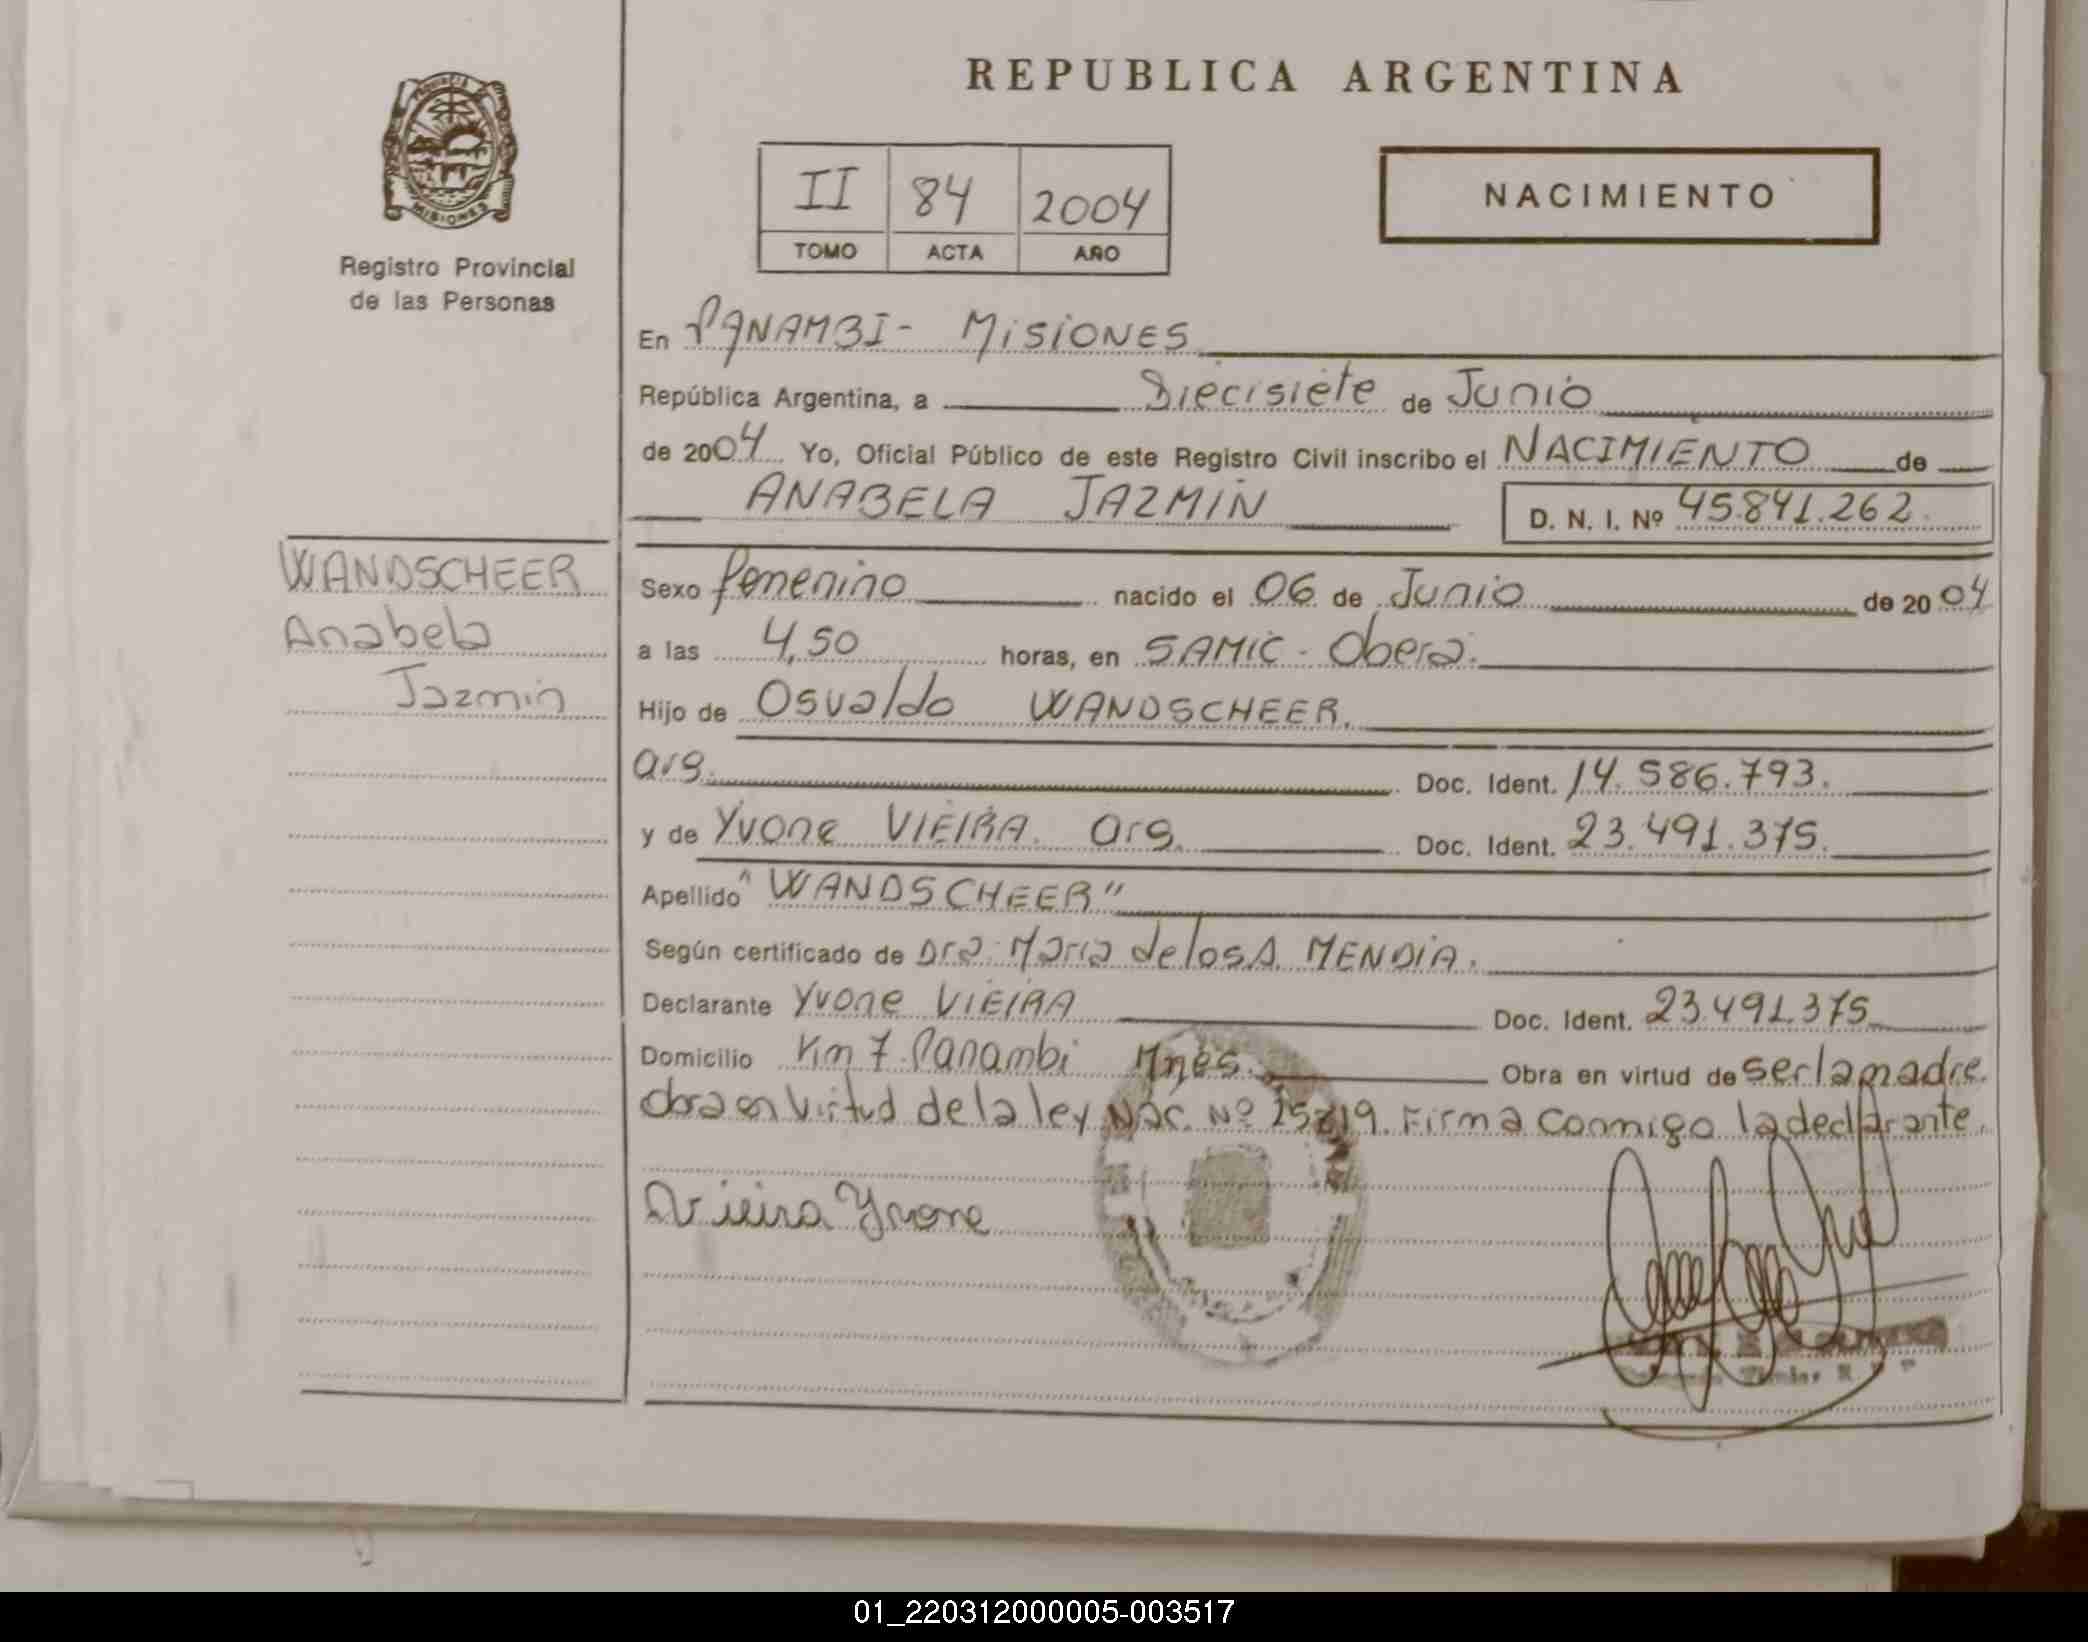 REPUBLICA ARGENTINA
PROVINCIA DE
MISIONES
Registro Provincial
de las Personas
II 84 2004
TOMO ACTA AÑO
NACIMIENTO
En PANAMBI - MISIONES
República Argentina, a Diecisiete de Junio
de 2004 Yo, Oficial Público de este Registro Civil inscribo el NACIMIENTO de
ANABELA JAZMIN D. N. I. Nº 45.841.262
WANDSCHEER
Anabela
Jazmin
Sexo femenino nacido el 06 de Junio de 2004
a las 4,50 horas, en SAMIC - Obera.
Hijo de Osvaldo WANDSCHEER.
arg. Doc. Ident. 14.586.793.
y de Yvone VIEIRA. arg. Doc. Ident. 23.491.375.
Apellido "WANDSCHEER"
Según certificado de Dra. Maria de los A. MENDIA.
Declarante Yvone VIEIRA Doc. Ident. 23.491.375
Domicilio Km 7. Panambi Mnes. Obra en virtud de ser la madre.
obra en virtud de la ley Nac. Nº 25819. Firma conmigo la declarante.
Vieira Yvone
Titular R P
01_220312000005-003517